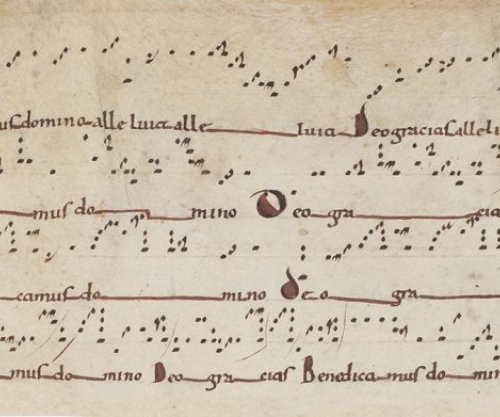 us domino alleluia alle luia Deo gracias allelu
mus do mino Deo gra cia
camus do mino deo gra
mus do mino Deo gra cias Benedica mus do min